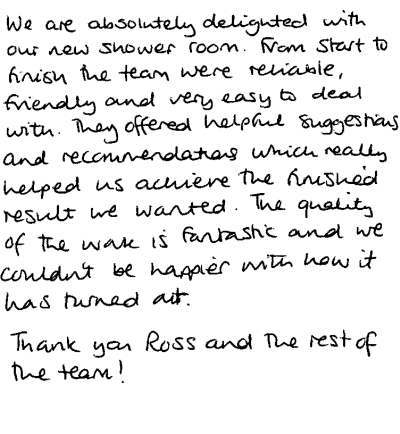 We are absolutely delighted with
our new shower room. From start to
finish the team were reliable,
friendly and very easy to deal
with. They offered helpful suggestions
and recommendations which really
helped us achieve the finished
result we wanted. The quality
of the work is fantastic and we
couldn't be happier with how it
has turned out.
Thank you Ross and the rest of
the team!